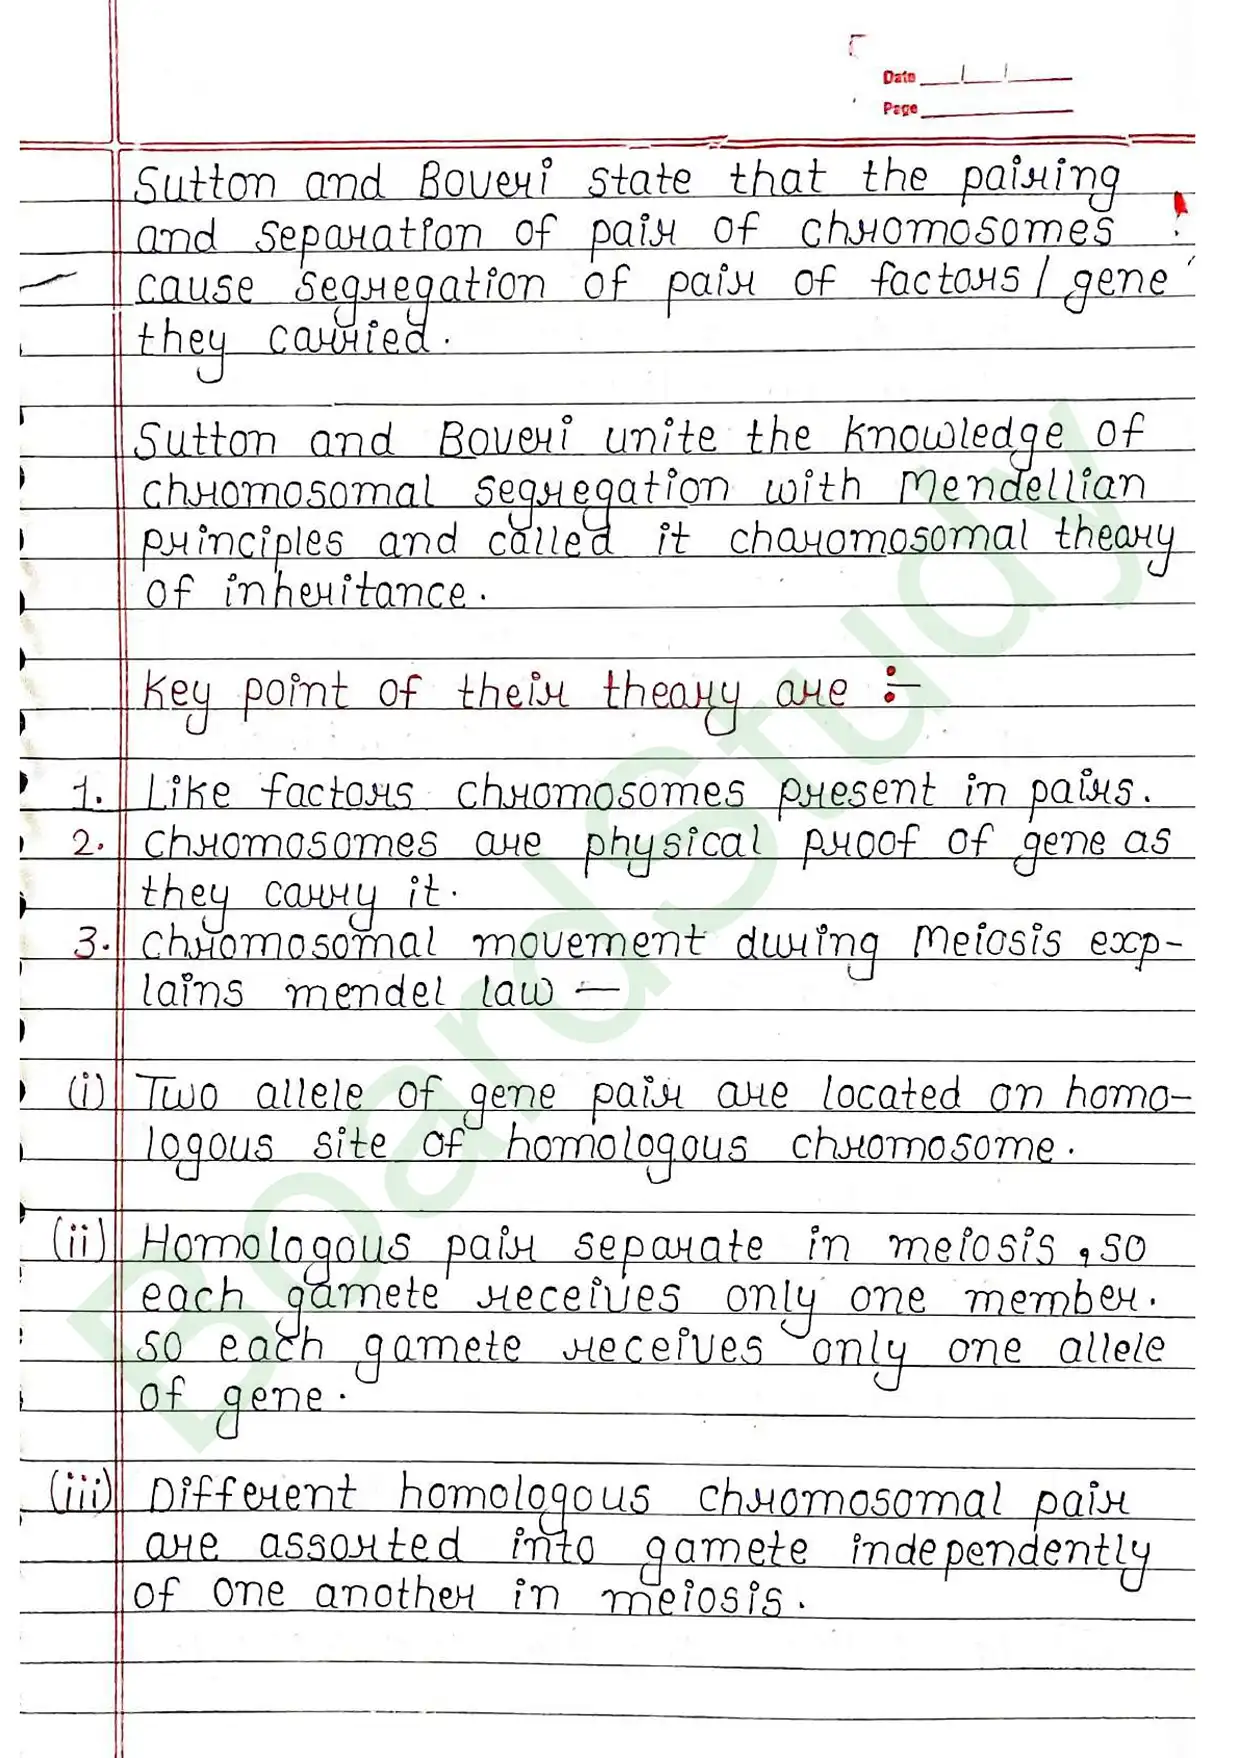 Date
Page
Sutton and Boveri state that the pairing
and separation of pair of chromosomes
cause segregation of pair of factors / gene
they carried.
Sutton and Boveri unite the knowledge of
chromosomal segregation with Mendellian
principles and called it charomosomal theary
of inheritance.
Key point of their theary are :-
1. Like factors chromosomes present in pairs.
2. Chromosomes are physical proof of gene as
they carry it.
3. Chromosomal movement during Meiosis exp-
lains mendel law —
(i) Two allele of gene pair are located on homo-
logous site of homologous chromosome.
(ii) Homologous pair separate in meiosis, so
each gamete receives only one member.
so each gamete receives only one allele
of gene.
(iii) Different homologous chromosomal pair
are assorted into gamete independently
of one another in meiosis.
BoardStudy